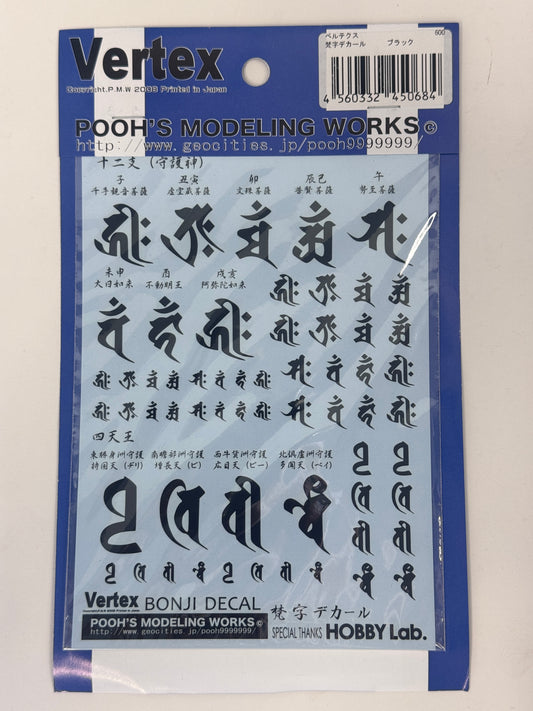 Vertex
Copyright.P.M.W 2008 Printed in Japan
ベルテクス 600
梵字デカール ブラック
4 560332 450684
POOH'S MODELING WORKS©
http://www.geocities.jp/pooh9999999/
十二支 (守護神)
子 丑寅 卯 辰巳 午
千手観音菩薩 虚空蔵菩薩 文殊菩薩 普賢菩薩 勢至菩薩
未申 酉 戌亥
大日如来 不動明王 阿弥陀如来
四天王
東勝身洲守護 南瞻部洲守護 西牛貨洲守護 北倶盧洲守護
持国天 (ヂリ) 増長天 (ビ) 広目天 (ビー) 多聞天 (ベイ)
Vertex BONJI DECAL 梵字デカール
Copyright.P.M.W 2008 Printed in Japan
POOH'S MODELING WORKS©
http://www.geocities.jp/pooh9999999/
SPECIAL THANKS HOBBY Lab.